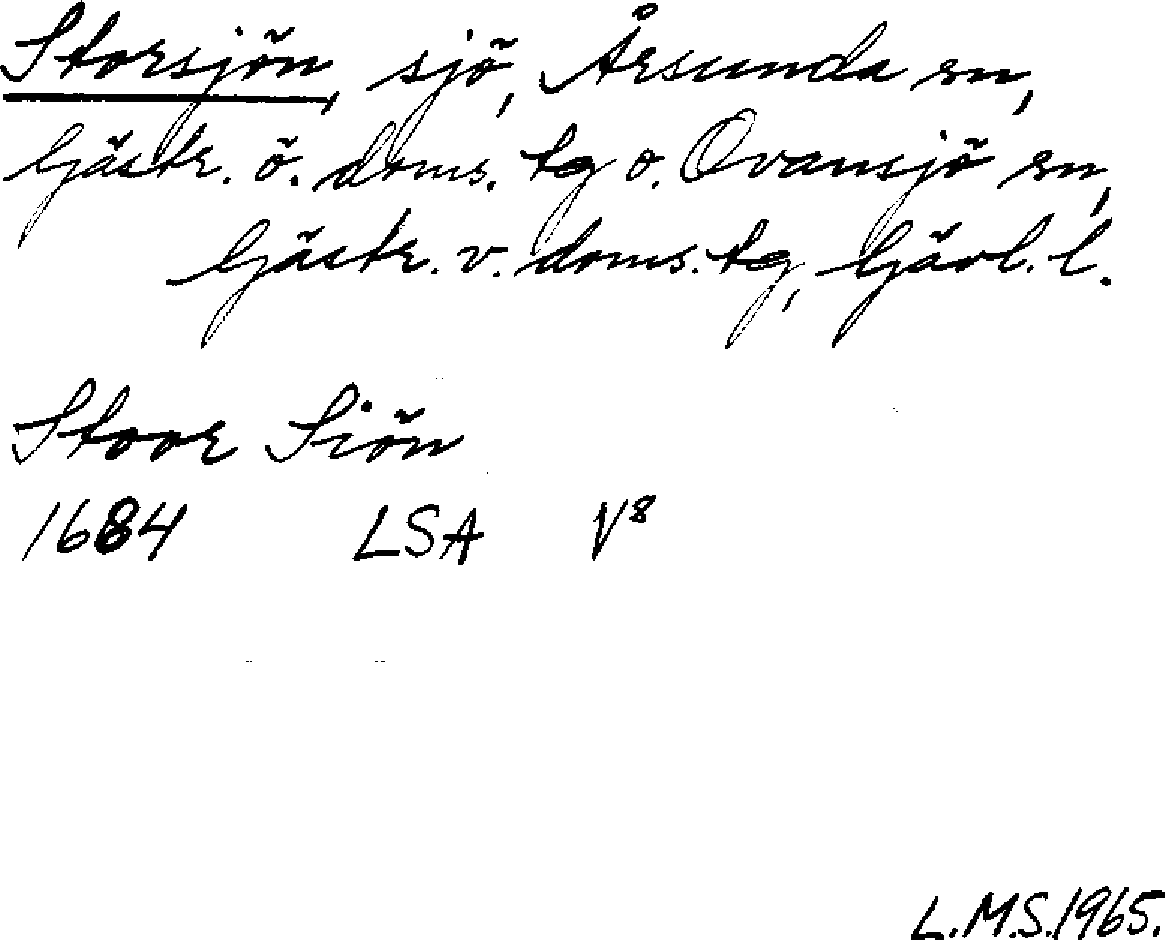 Storsjön, sjö, Årsunda sn,
Gästr. ö. doms. tg o. Ovansjö sn,
Gästr. v. doms. tg, Gävl. l.
Stoor Siön
1684 LSA V⁸
L.M.S. 1965.